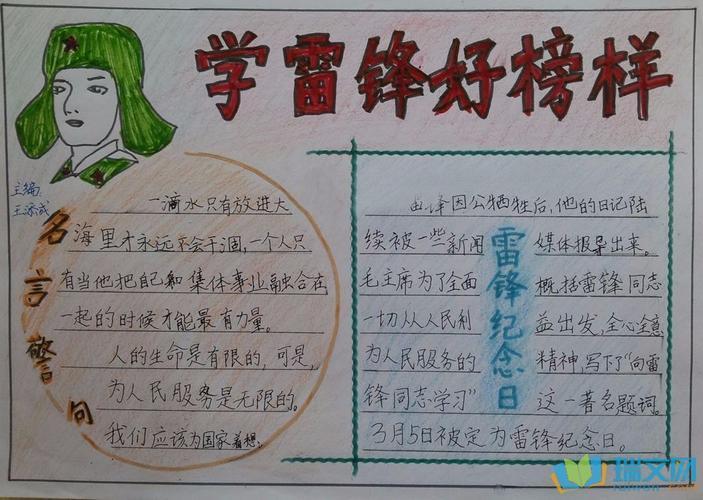 学雷锋好榜样
主编
王添
名言警句
一滴水只有放进大
海里才永远不会干涸,一个人只
有当他把自己和集体事业融合在
一起的时候才能最有力量。
人的生命是有限的,可是,
为人民服务是无限的。
我们应该为国家着想。
雷锋纪念日
雷锋因公牺牲后,他的日记陆
续被一些新闻 媒体报导出来。
毛主席为了全面 概括雷锋同志
一切从人民利 益出发,全心全意
为人民服务的 精神,写下了“向雷
锋同志学习” 这一著名题词。
3月5日被定为雷锋纪念日。
瑞文网